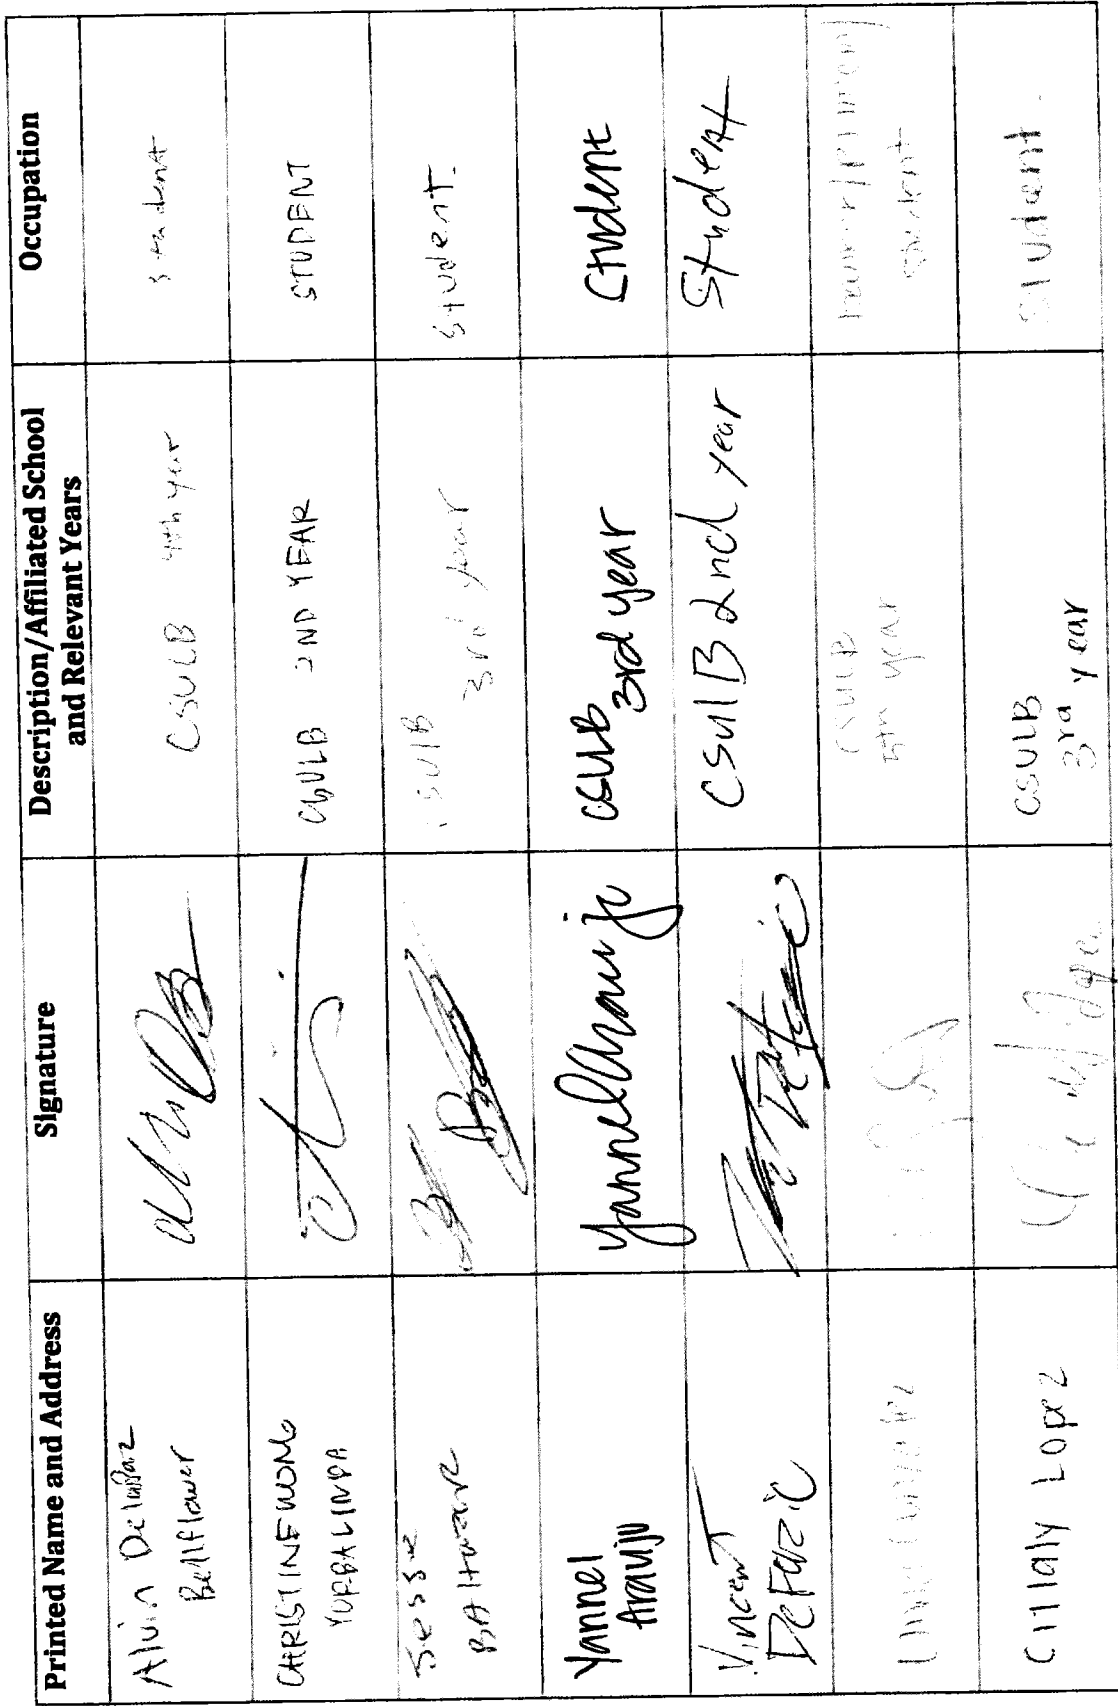 Printed Name and Address Signature Description/Affiliated School and Relevant Years Occupation
Alvin DelaPaz
Bellflower
CSULB 4th year
student
CHRISTINE WONG
YORBA LINDA
CSULB 2ND YEAR
STUDENT
Jesse
BAltazar
CSUlB
3rd year
student
Yannel
Araujo
Yannel Araujo
CSULB
3rd year
Student
Vincent
DeFazio
CSUlB 2nd year
Student
CSULB
5th year
student
Citlaly Lopez
CSULB
3rd year
Student